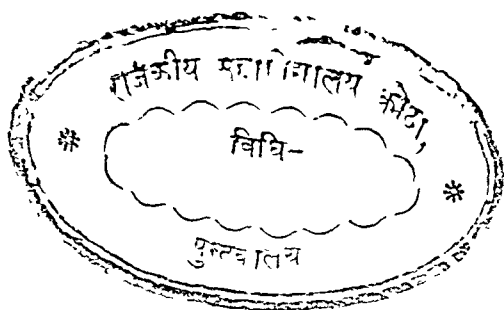 राजकीय महाविद्यालय कोटा,
विधि-
पुस्तकालय